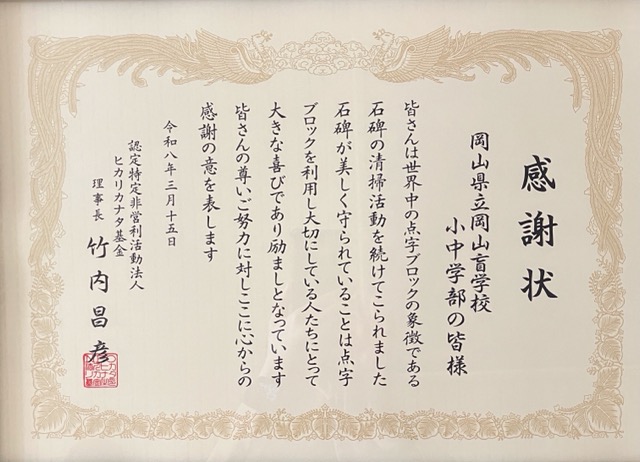 感謝状
岡山県立岡山盲学校
小中学部の皆様
皆さんは世界中の点字ブロックの象徴である
石碑の清掃活動を続けてこられました
石碑が美しく守られていることは点字
ブロックを利用し大切にしている人たちにとって
大きな喜びであり励ましとなっています
皆さんの尊いご努力に対しここに心からの
感謝の意を表します
令和八年三月十五日
認定特定非営利活動法人
ヒカリカナタ基金
理事長 竹内昌彦